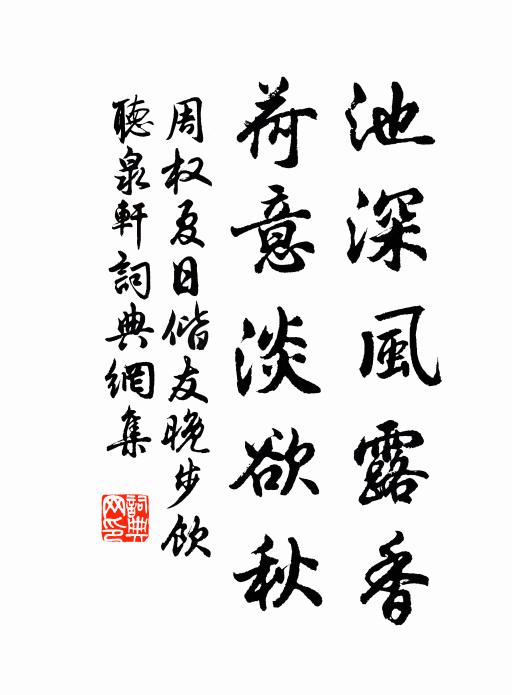 池深風露香
荷意淡欲秋
周权夏日偕友晚步飲
聽泉軒詞典網集
詞典网印